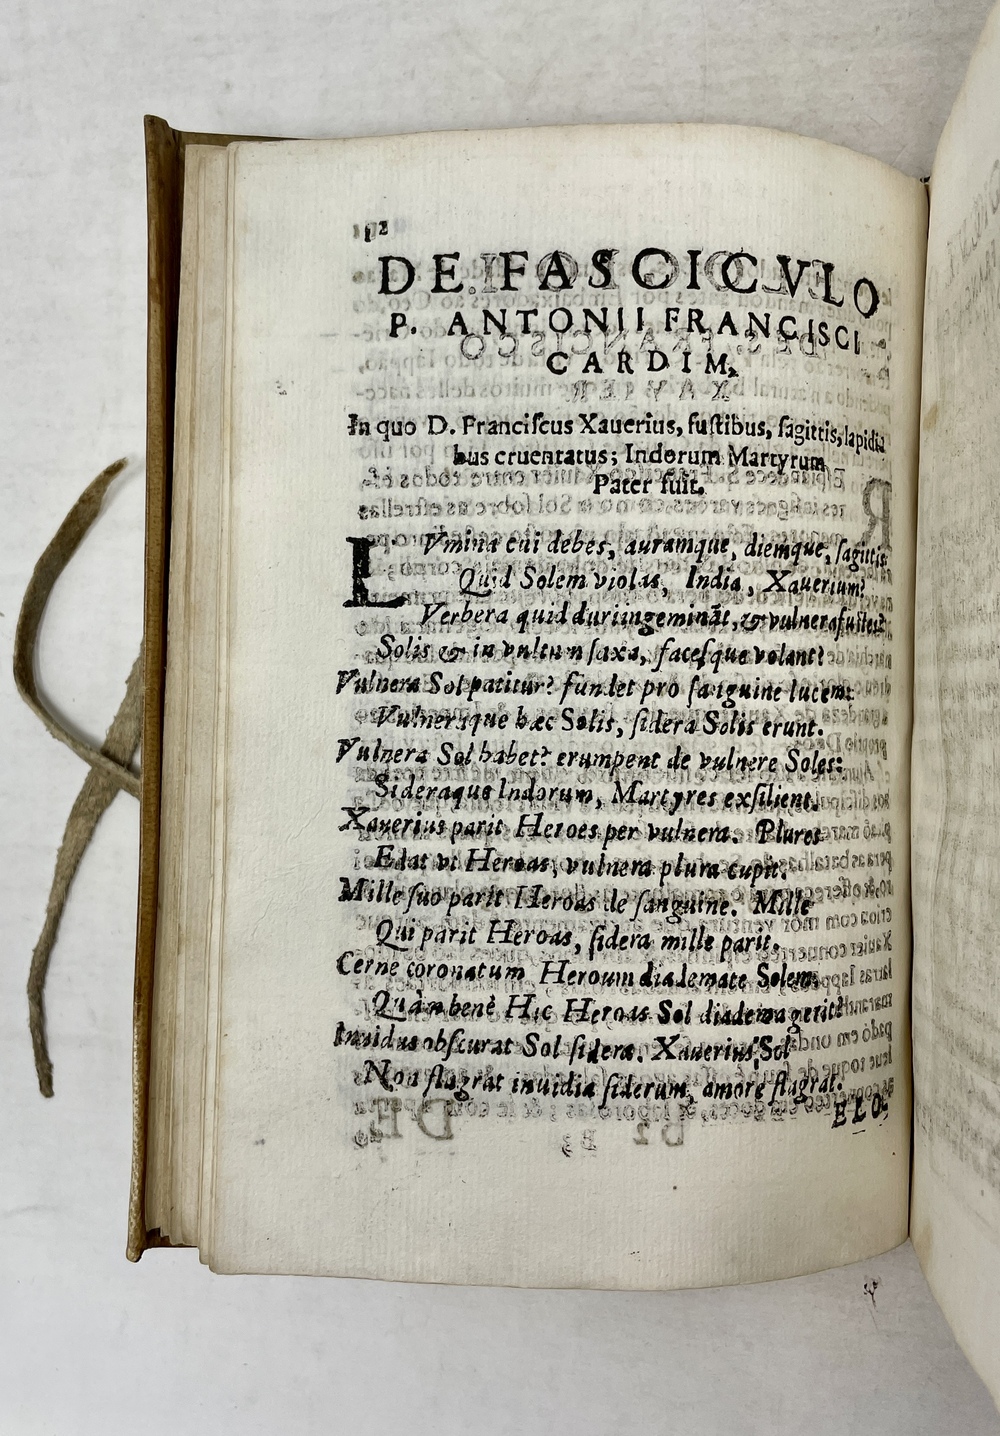 DE FASCICVLO
P. ANTONII FRANCISCI
CARDIM,
In quo D. Franciſcus Xauerius, fuſtibus, ſagittis, lapidi
bus cruentatus; Indorum Martyrum
Pater fuit.
LVmina cui debes, auramque, diemque, ſagittis
Quid Solem violas, India, Xauerium?
Verbera quid duri ingeminãt, & vulnera fuſtes?
Solis & in vultum ſaxa, faceſque volant?
Vulnera Sol patitur? fundet pro ſanguine lucem:
Vulneraque hæc Solis, ſidera Solis erunt.
Vulnera Sol habet? erumpent de vulnere Soles:
Sideraque Indorum, Martyres exſilient.
Xauerius parit Heroes per vulnera. Plures
Edat vt Heroas, vulnera plura cupit.
Mille ſuo parit Heroas de ſanguine. Mille
Qui parit Heroas, ſidera mille parit.
Cerne coronatum Heroum diademate Solem:
Quàm benè Hic Heroas Sol diadema gerit?
Inuidus obſcurat Sol ſidera. Xauerius Sol
Non flagrat inuidia ſiderum, amore flagrat.
ELO-